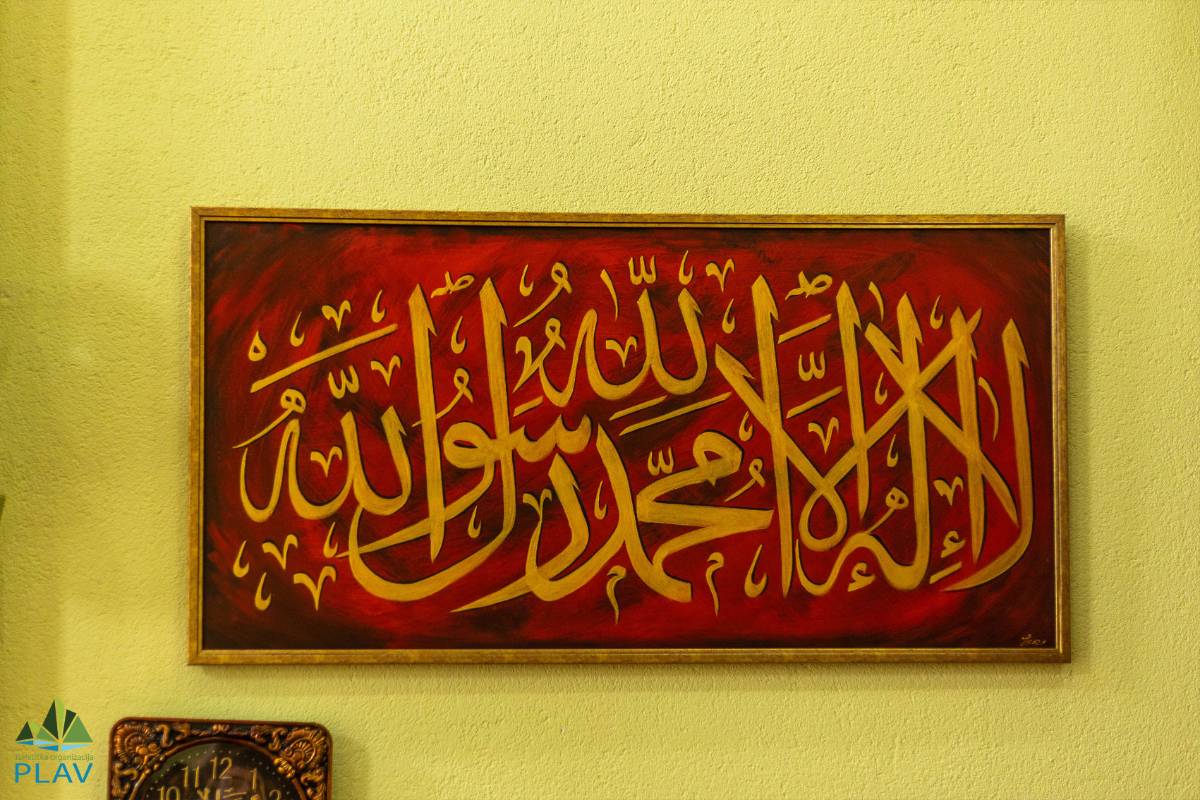 لا إله إلا الله محمد رسول الله
11 12 1
10 2
turistička organizacija
PLAV